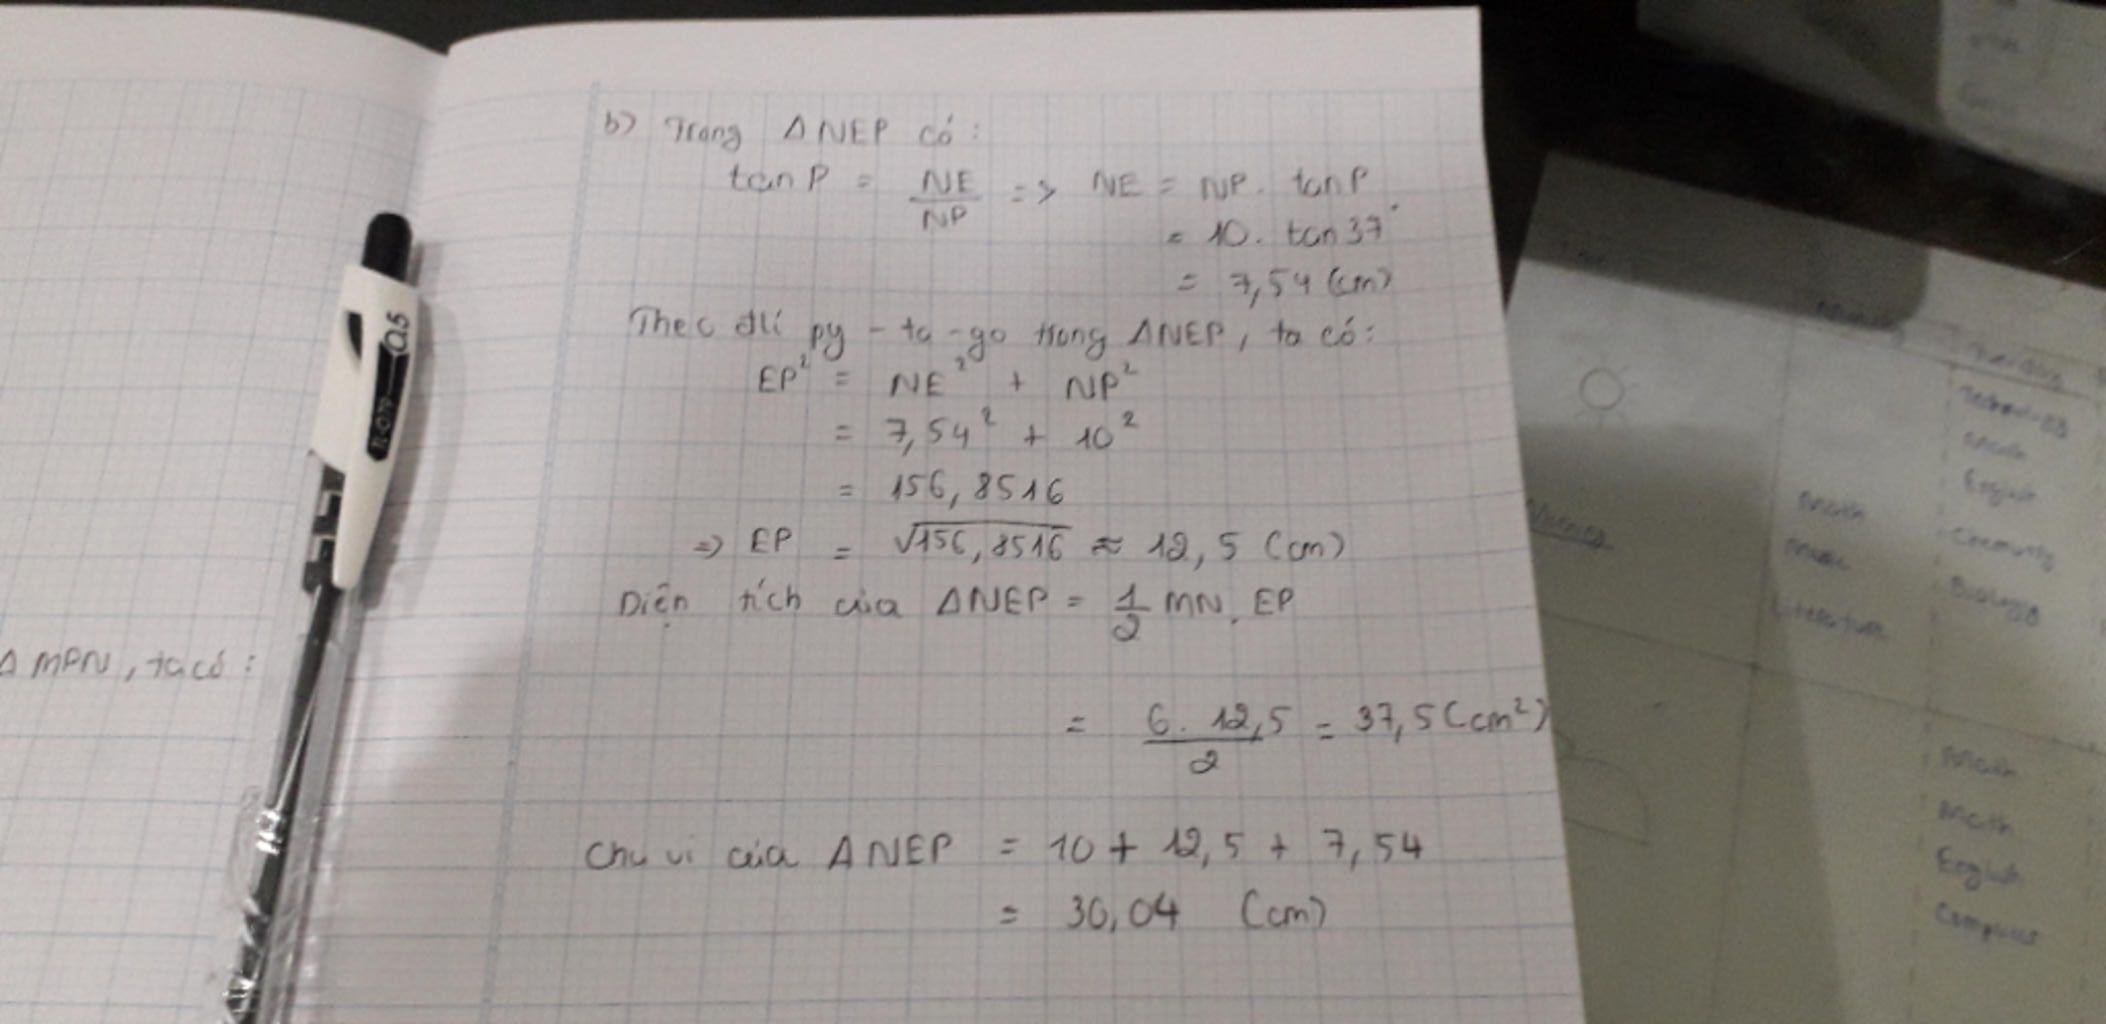 b) Trong ΔNEP có:
tan P = NE/NP => NE = NP. tan P
= 10. tan 37°
= 7,54 (cm)
Theo đlí py-ta-go trong ΔNEP, ta có:
EP² = NE² + NP²
= 7,54² + 10²
= 156,8516
=> EP = √156,8516 ≈ 12,5 (cm)
Diện tích của ΔNEP = 1/2 MN. EP
= 6. 12,5/2 = 37,5 (cm²)
Chu vi của ΔNEP = 10 + 12,5 + 7,54
= 30,04 (cm)
Δ MPN, ta có:
0.5
Math
Music
Literature
Technology
Math
English
Biology
Math
Math
English